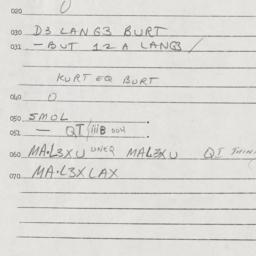 020 0
030 D3 LANG3 BURT
031 -BUT 12A LANG3/
KURT EQ BURT
040 0
050 SMOL
051 - QT/iiiB DOH
060 MA·L3XU UNEQ MAL3XU QI THIN
070 MA·L3XLAX